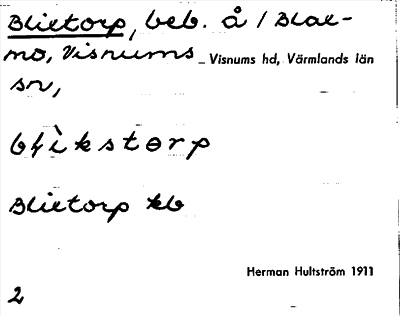 Blietorp, beb. å 1 Blac-
mo, Visnums Visnums hd, Värmlands län
sn,
Blietorp kb
Herman Hultström 1911
2